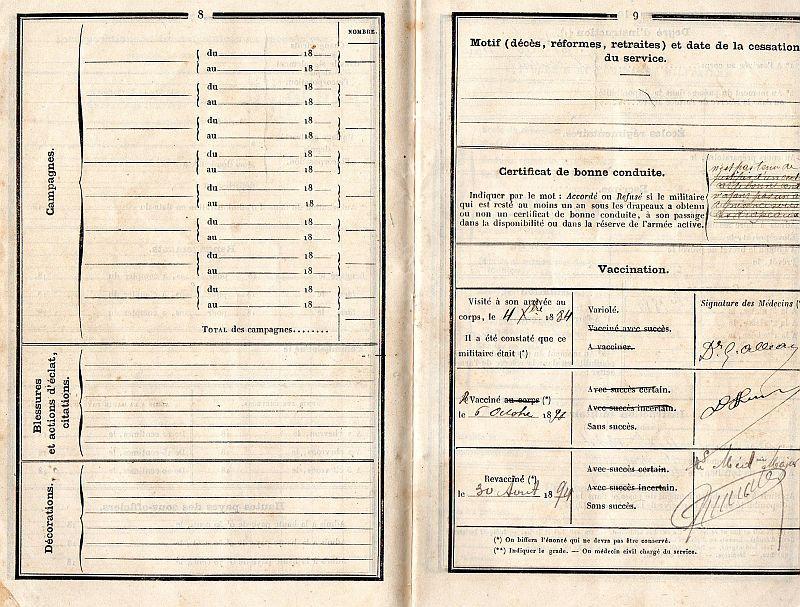 8
NOMBRE.
Campagnes.
du 18
au 18
du 18
au 18
du 18
au 18
du 18
au 18
du 18
au 18
du 18
au 18
du 18
au 18
du 18
au 18
TOTAL des campagnes........
Blessures
et actions d'éclat,
citations.
Décorations.
9
Motif (décès, réformes, retraites) et date de la cessation
du service.
Certificat de bonne conduite.
Indiquer par le mot : Accordé ou Refusé si le militaire
qui est resté au moins un an sous les drapeaux a obtenu
ou non un certificat de bonne conduite, à son passage
dans la disponibilité ou dans la réserve de l'armée active.
n'est pas tenu de
Vaccination.
Visité à son arrivée au
corps, le 4 Xbre 1884
Il a été constaté que ce
militaire était (*)
Variolé.
Vacciné avec succès.
A vacciner.
Signature des Médecins (*
Vacciné au corps (*)
le 6 Octobre 189
Avec succès certain.
Avec succès incertain.
Sans succès.
Revacciné (*)
le 30 Août 1894
Avec succès certain.
Avec succès incertain.
Sans succès.
Méd Major
(*) On biffera l'énoncé qui ne devra pas être conservé.
(**) Indiquer le grade. — On médecin civil chargé du service.